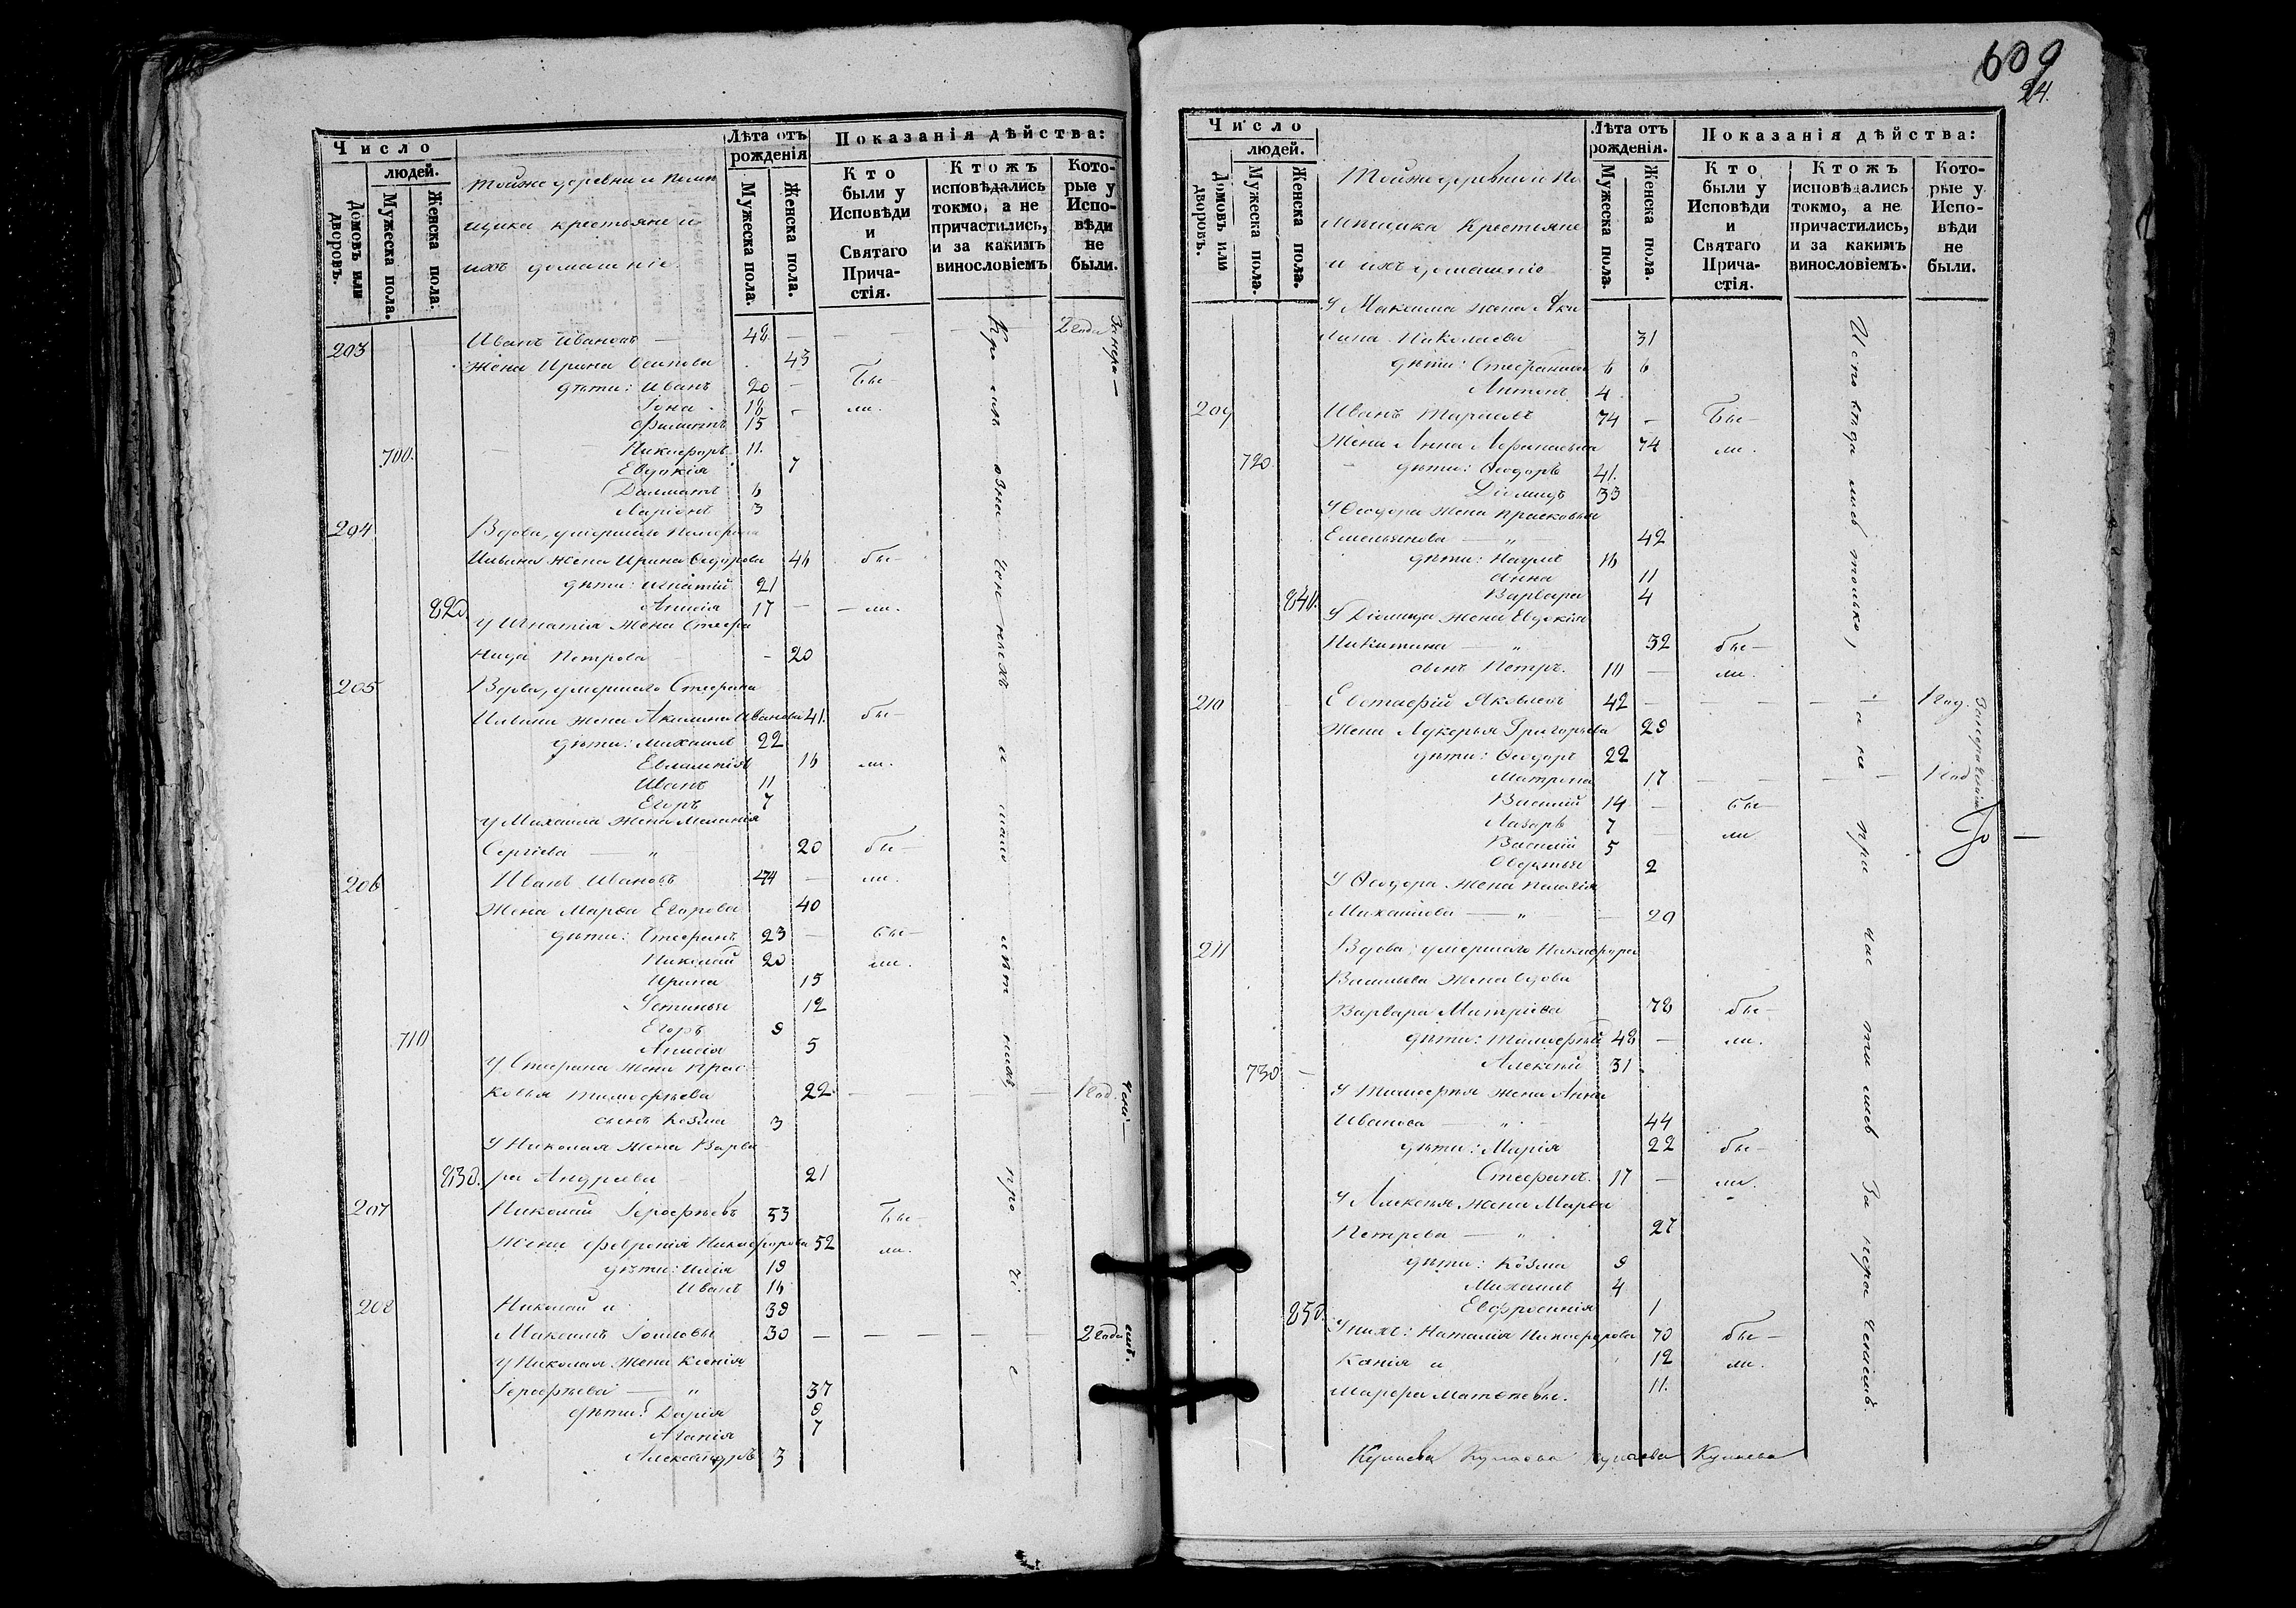 Число
людей.
Домовъ или дворовъ.
Мужеска пола.
Женска пола.
Тойже деревни и Помѣ
щика крестьяне и
ихъ домашніе.
Лѣта отъ рожденія
Мужеска пола.
Женска пола.
Показанія дѣйства:
Кто были у Исповѣди и Святаго Прича- стія.
Ктожъ исповѣдались токмо, а не причастились, и за какимъ винословіемъ
Кото- рые у Испо- вѣди не были.
203 Иванъ Ивановъ — 48 — — — — 2 года
Жена Ирина Осипова 43
дѣти: Иванъ 20 — Бы—
Іона 18 — ли.
Филиппъ 15
700. Никифоръ 11.
Евдокія 7
Далматъ 6
Ларіонъ 3
204 Вдова, умершаго
Ильина жена Ирина Ѳедорова 46 бы—
дѣти: Игнатій 21
820. Анисія 17 — — ли.
У Игнатія жена Стефа
нида Петрова — 20
205 Вдова, умершаго Стефана
Ильина жена Акилина Иванова 41. бы—
дѣти: Михаилъ 22
Евлампія 16 ли.
Иванъ 11
Егоръ 7
У Михаила жена Меланія
Сергіева — " 20 бы—
206 Иванъ Ивановъ 44 — ли.
Жена Марѳа Егорова 40
дѣти: Стефанъ 23 — бы—
Николай 20 ли.
Ирина 15
Устинья 12
710 Егоръ 9
Анисія 5
У Стефана жена Прас
ковья Тимофѣева 22. — — — — 1 год.
сынъ Козма 3
У Николая жена Варва
830. ра Андреева 21
207 Николай Іерофѣевъ 53 Бы—
Жена Февронія Никифорова 52 ли.
дѣти: Илія 19
Иванъ 16
208 Николай и 39
Максимъ 30 — — — — — 2 года
У Николая жена Ксенія
Іерофѣева — " 37
дѣти: Дарія 9
Агапія 7
Александръ 3
609
24.
Число
людей.
Домовъ или дворовъ.
Мужеска пола.
Женска пола.
Тойже деревни и По
мѣщика Крестьяне
и ихъ домашніе
Лѣта отъ рожденія.
Мужеска пола.
Женска пола.
Показанія дѣйства:
Кто были у Исповѣди и Святаго Прича- стія.
Ктожъ исповѣдались токмо, а не причастились, и за какимъ винословіемъ.
Кото- рые у Испо- вѣди не были.
У Максима жена Аки
лина Николаева 31
дѣти: 6 6
Антонъ 4
209 Иванъ 74 — Бы—
Жена Анна Аѳанасьева 74 ли.
720. дѣти: Ѳеодоръ 41.
Діомидъ 33
У Ѳеодора жена Прасковья
Емельянова — " — 42
дѣти: Наумъ 16
Анна 11
840. Варвара 4
У Діомида жена Евдокія
Никитина — " 32 бы—
сынъ Петръ. 10 — ли.
210 Евстафій Яковлевъ 42 — — — — — 1 год.
Жена Лукерья Григорьева 29
дѣти: Ѳеодоръ 22
Матрона 17 — — — — 1 год
Василій 14 — бы—
Лазарь 7 — ли
Василій 5
Авдотья 2
У Ѳеодора жена Пелагія
Михайлова — " — 20
211 Вдова, умершаго Никифора
Васильева жена вдова
Варвара Митріева 78 бы—
дѣти: Тимофѣй 48 — ли.
730 — Алексѣй 31
У Тимофѣя жена Анна
Иванова — " — 44
дѣти: Марія 22 бы—
Стефанъ. 17 — ли.
У Алексѣя жена Марѳа
Петрова — " 27
дѣти: Козма 9
Михаилъ 4
850. Евфросинія 1
У нихъ: Наталія Никифорова 70 бы—
Ксенія и 12 ли.
Марѳа 11.
Исповѣдались только, а не причастились За нерачениемъ.